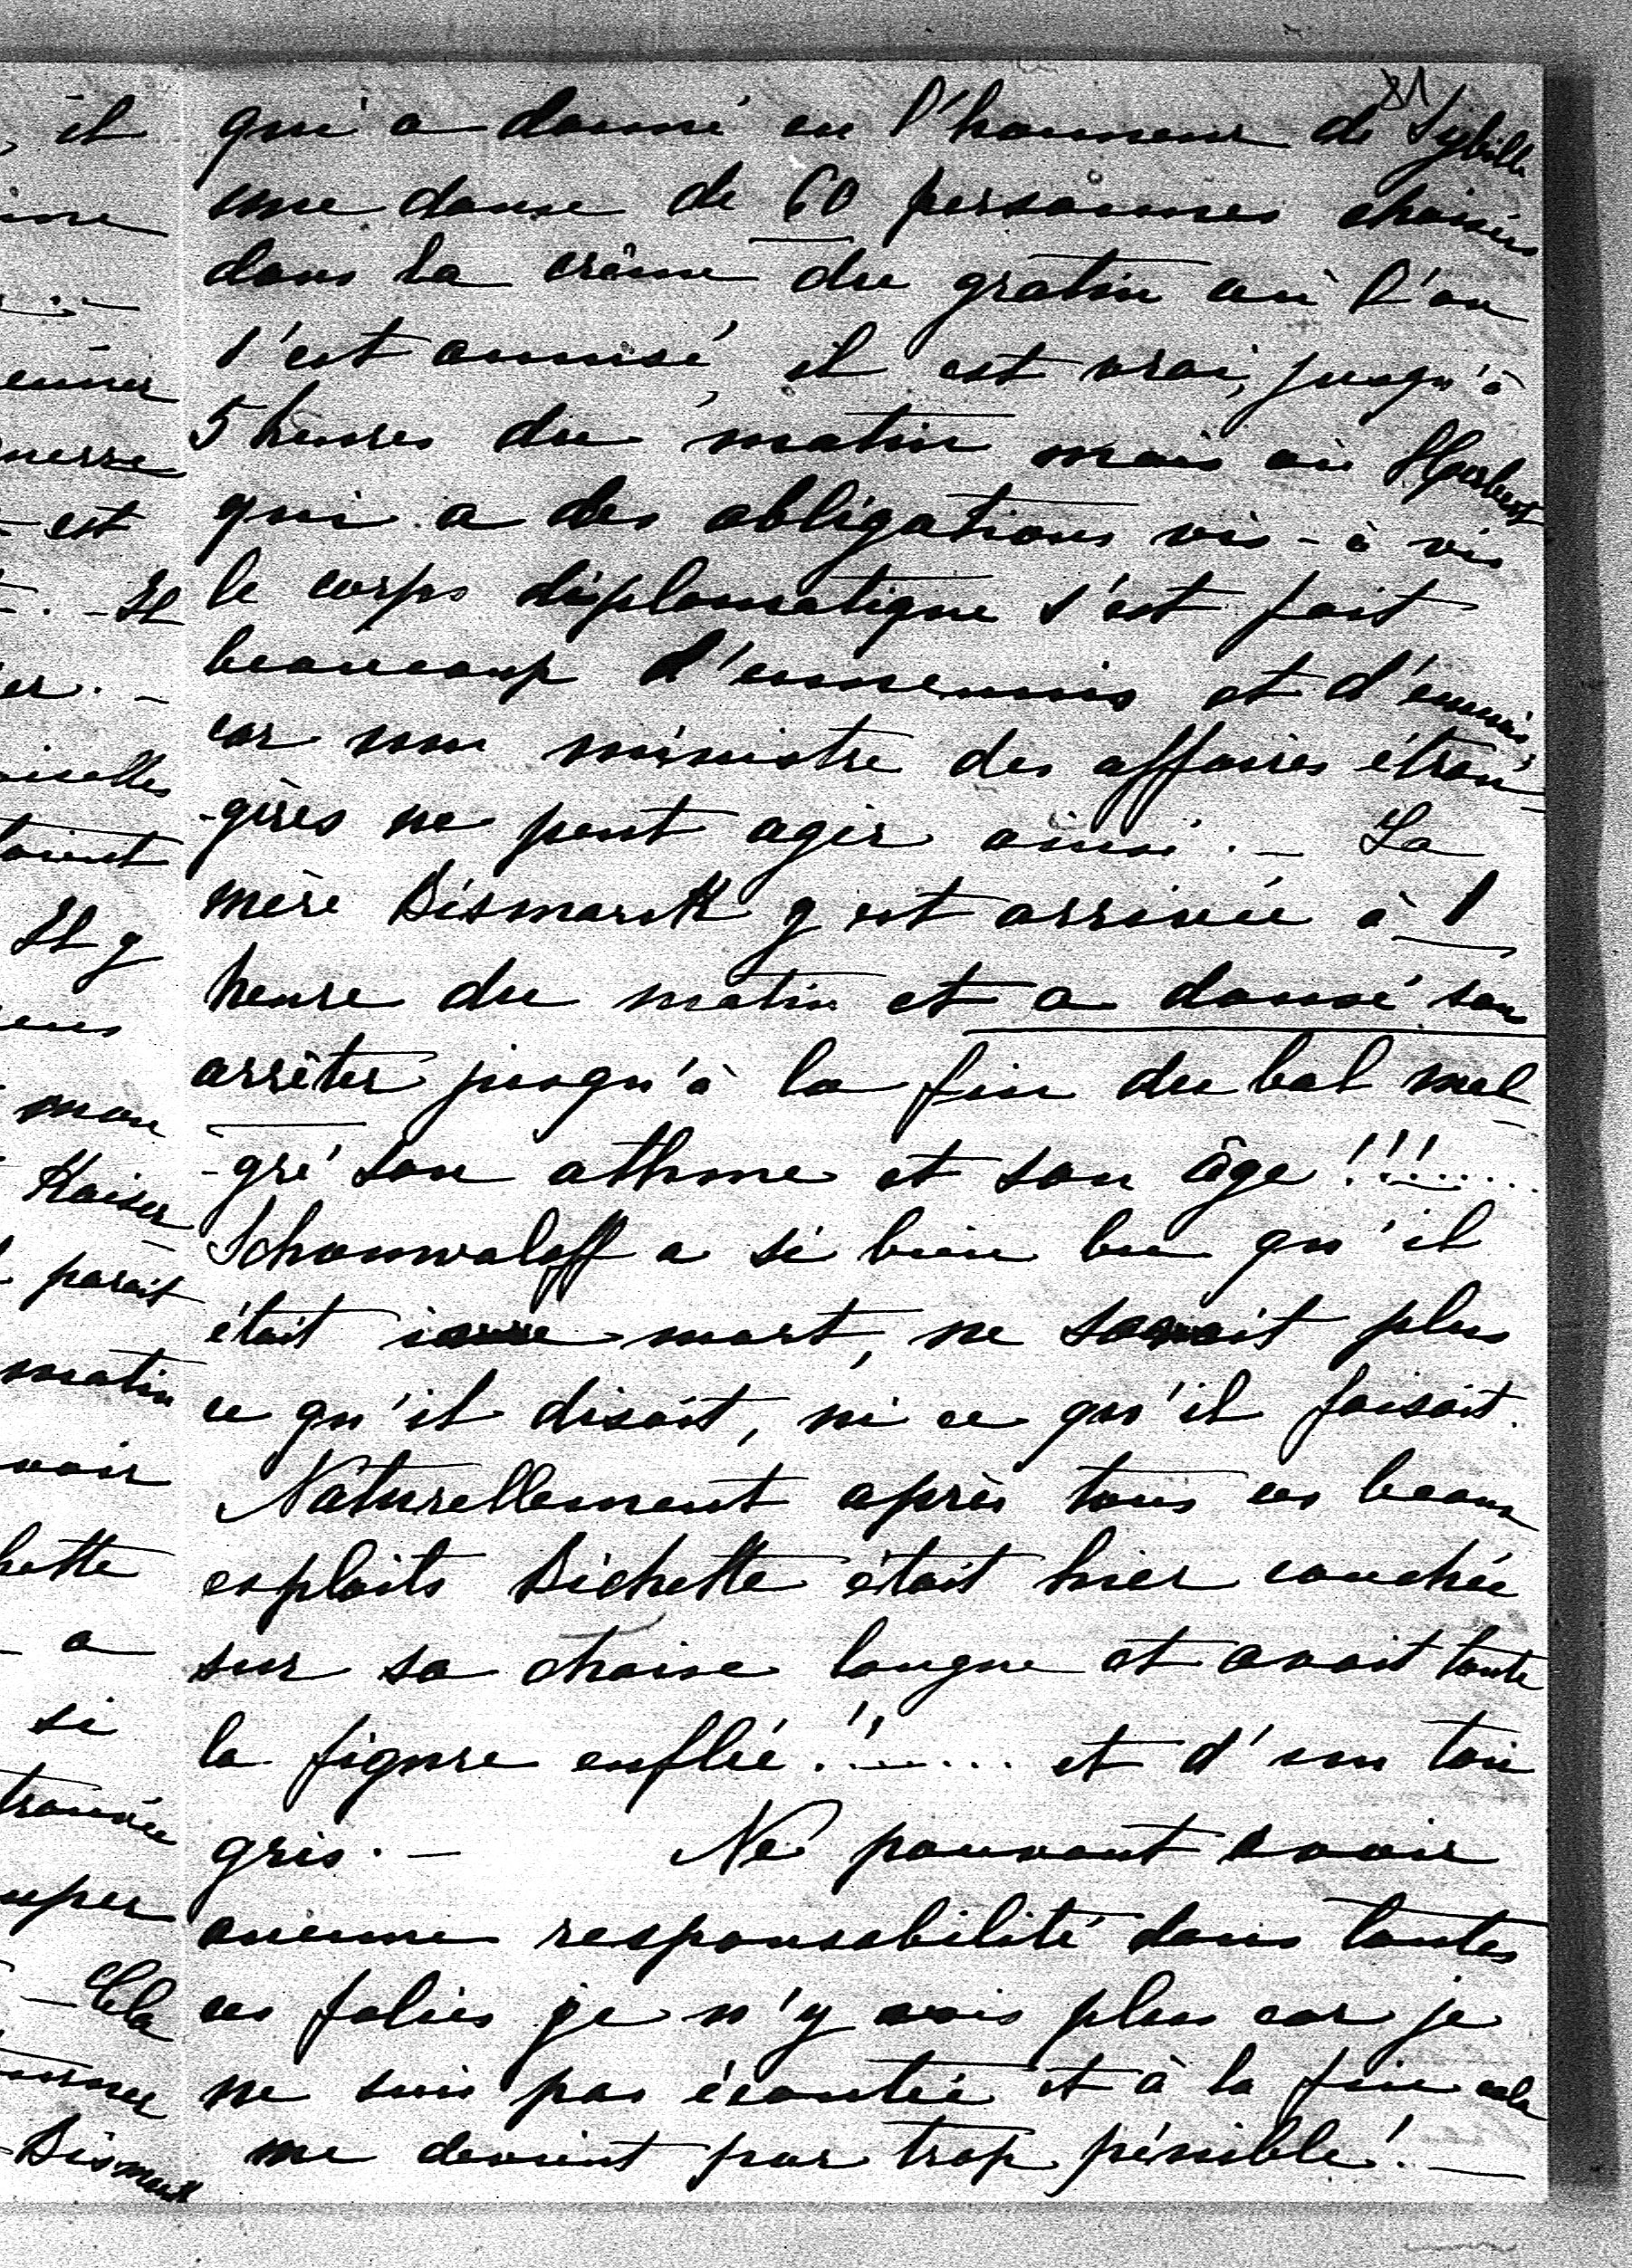 81
qui a donné en l'honneur de Sybille
une danse de 60 personnes choisies
dans la crême du gratin où l'on
s'est amusé, il est vrai, jusqu'à
5 heures du matin mais où Herbert
qui a des obligations vis-à vis
le corps diplomatique s'est fait
beaucoup d'ennemis et d'ennuis,
car un ministre des affaires étran-
-gères ne peut agir ainsi. — La
mère Bismarck y est arrivée à 1
heure du matin et a dansé sans
arrêter jusqu'à la fin du bal mal-
-gré son athme et son âge !!!......
Schouwaloff a si bien bu qu'il
était ivre mort, ne savait plus
ce qu'il disait, ni ce qu'il faisait.
Naturellement après tous ces beaux
exploits Bichette était hier couchée
sur sa chaise longue et avait toute
la figure enflée!!..... et d'un ton
gris. — Ne pouvant avoir
aucune responsabilité dans toutes
ces folies je n'y vais plus car je
ne suis pas écoutée et à la fin cela
me devient par trop pénible! —
il
est
Il
Il y
mon
Kaiser
parait
matin
voir
a
si
Cela
Bismarck